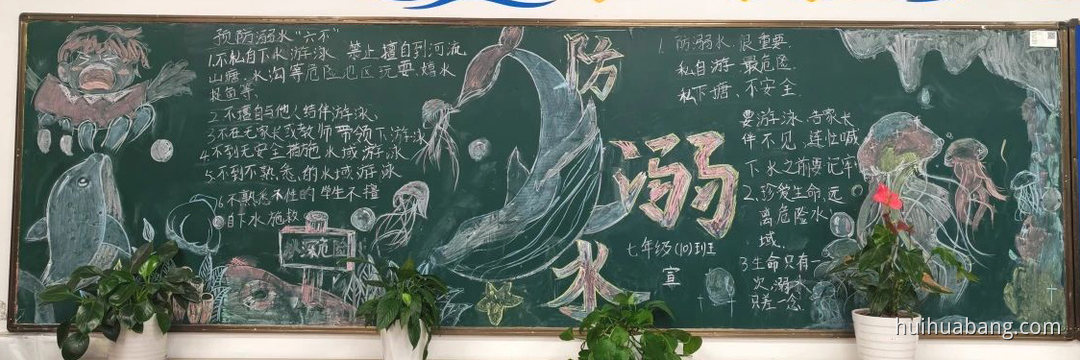 预防溺水“六不”
1.不私自下水游泳、禁止擅自到河流
山塘、水沟等危险地区玩耍、嬉水
捉鱼等.
2.不擅自与他人结伴游泳、
3.不在无家长或教师带领下游泳
4.不到无安全措施水域游泳
5.不到不熟悉的水域游泳
6.不熟悉水性的学生不擅
自下水施救
水深危险
防
溺
水
七年级(10)班
宣
1.防溺水、很重要.
私自游、最危险
私下塘、不安全
要游泳、告家长
伴不见、连忙喊
下水之前要记牢
2.珍爱生命,远
离危险水
域.
3.生命只有一
次,溺水
只差一念.
huihuabang.com